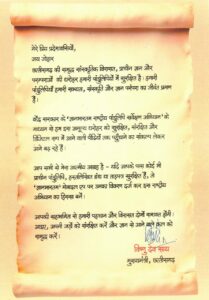 मेरे प्रिय प्रदेशवासियों,
जय जोहार
छत्तीसगढ़ की समृद्ध सांस्कृतिक विरासत, प्राचीन ज्ञान और
परंपराओं की धरोहर हमारी पांडुलिपियों में सुरक्षित है। हमारी
पांडुलिपियाँ हमारी सभ्यता, संस्कृति और ज्ञान परंपरा की जीवंत प्रमाण
हैं।
केंद्र सरकार के 'ज्ञानभारतम राष्ट्रीय पांडुलिपि सर्वेक्षण अभियान' के
माध्यम से हम इस अमूल्य धरोहर को सुरक्षित, संरक्षित और
डिजिटल रूप में आने वाली पीढ़ियों तक पहुंचाने का संकल्प लेकर
आगे बढ़ रहे हैं।
आप सभी से मेरा आत्मीय आग्रह है - यदि आपके पास कोई भी
प्राचीन पांडुलिपि, हस्तलिखित ग्रंथ या ताड़पत्र सुरक्षित हैं, तो
'ज्ञानभारतम' मोबाइल एप पर उनका विवरण दर्ज कर इस राष्ट्रीय
अभियान का हिस्सा बनें।
आपकी सहभागिता से हमारी पहचान और विरासत दोनों सशक्त होंगी।
आइए, अपनी जड़ों को संरक्षित करें और ज्ञान से आने वाले कल को
समृद्ध करें।
विष्णु देव साय
मुख्यमंत्री, छत्तीसगढ़